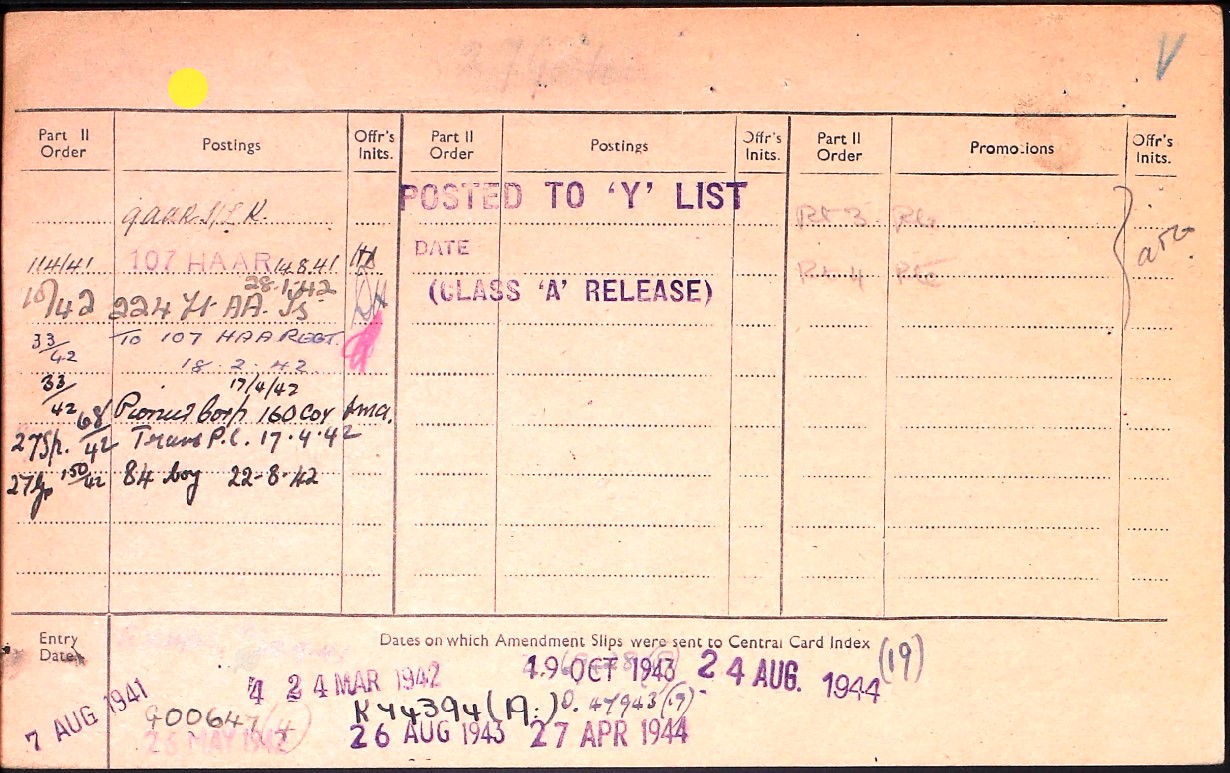 V
Part II Order Postings Offr's Inits. Part II Order Postings Offr's Inits. Part II Order Promotions Offr's Inits.
POSTED TO ‘Y’ LIST
DATE
(CLASS ‘A’ RELEASE)
114/41 107 HAAR 14.8.41
28.1.42
10/42 224 AA.
33/42 To 107 HAA REGT.
18.2.42
17/4/42
33/42 Pioneer Corp 160 Coy
68/42 Trans P.C. 17.4.42
150/42 84 Coy 22-8-42
Entry Date
Dates on which Amendment Slips were sent to Central Card Index
(19)
4 24 MAR 1942 19 OCT 1943 24 AUG. 1944
7 AUG 1941
900647 (4) K44394 (A.) 47943 (19)
26 MAY 1942 26 AUG 1943 27 APR 1944